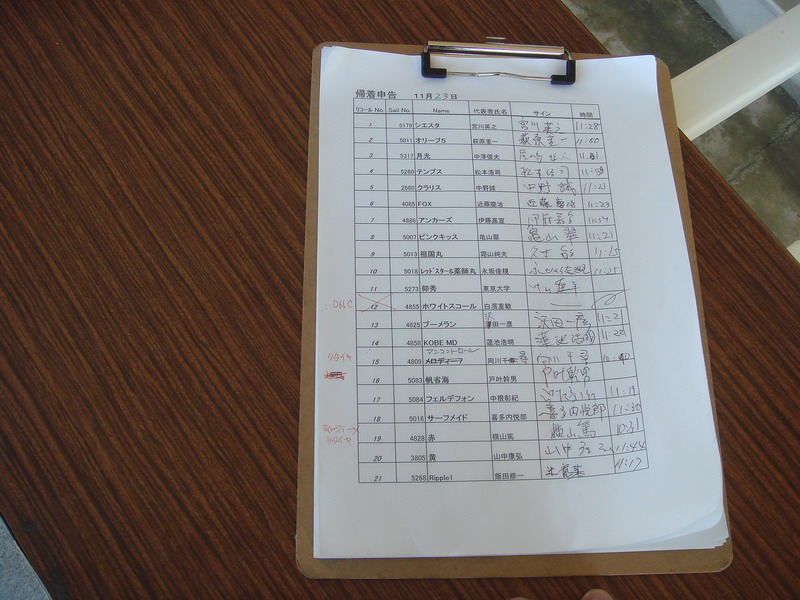 帰着申告 11月23日
リコール No. Sail No. Name 代表者氏名 サイン 時間
1 5179 シエスタ 宮川英之 宮川英之 11:28
2 5011 オリーブ5 萩原圭一 萩原圭一
3 5217 月光 中澤信夫
4 5280 テンプス 松本浩司 松本浩司
5 2680 クラリス 中野誠 中野誠 11:23
6 4085 FOX 近藤慶治 近藤慶治 11:23
7 4886 アンカーズ 伊藤嘉宣
8 5007 ピンクキッス 亀山翠 亀山翠 11:21
9 5013 祖国丸 霜山純夫 11:15
10 5018 レッドスター&薬師丸 永坂佳規 永坂佳規 11:25
11 5273 仰秀 東京大学
DNC 12 4855 ホワイトスコール 白濱重敏
13 4825 ブーメラン 澤田一彦 沢 沢田一彦
14 4858 KOBE MD 蓮池浩明 蓮池浩明
アンコントロール
リタイヤ 15 4809 メロディーフ 向川千 尋 向川千尋
16 5083 帆省海 戸叶幹男 戸叶幹男
17 5084 フェルデフォン 中根彰紀 11:19
18 5016 サーフメイド 喜多内悦郎 喜多内悦郎 11:30
19 4828 赤 横山篤 横山篤 10:31
20 3805 黄 山中康弘 11:44
21 5268 Ripple1 飯田修一 11:17